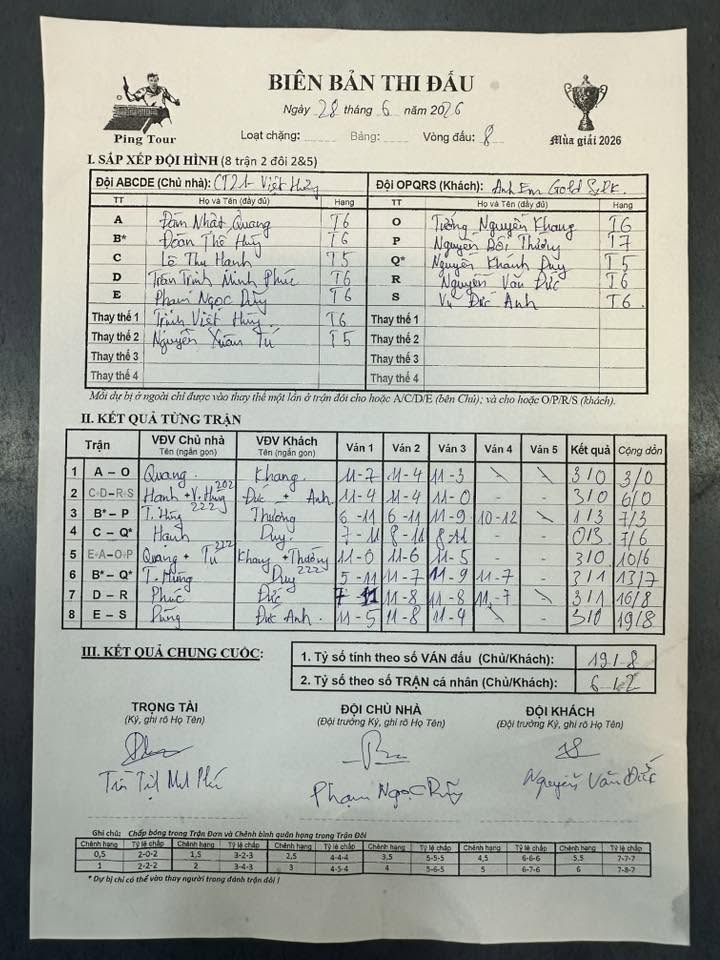 BIÊN BẢN THI ĐẤU
Ping Tour
Ngày 28 tháng 6 năm 2026
Mùa giải 2026
Loại chặng: Bảng: Vòng đấu: 8
I. SẮP XẾP ĐỘI HÌNH (8 trận 2 đôi 2&5)
Đội ABCDE (Chủ nhà): CT21-Việt Hưng Đội OPQRS (Khách): Anh Em Gold
TT Họ và Tên (đầy đủ) Hạng TT Họ và Tên (đầy đủ) Hạng
A Đàm Nhật Quang T6 O Tướng Nguyên Khang T6
B* Đoàn Thế Hùng T6 P Nguyễn Bội Thưởng T7
C Lê Thu Hanh T5 Q* Nguyễn Khánh Duy T5
D Trần Trịnh Minh Phúc T6 R Nguyễn Văn Đức T6
E Phạm Ngọc Dũng T6 S Vũ Đức Anh T6
Thay thế 1 Trịnh Việt Hùng T6 Thay thế 1
Thay thế 2 Nguyễn Xuân Tú T5 Thay thế 2
Thay thế 3 Thay thế 3
Thay thế 4 Thay thế 4
Mỗi dự bị ở ngoài chỉ được vào thay thế một lần ở trận đôi cho hoặc A/C/D/E (bên Chủ); và cho hoặc O/P/R/S (khách).
II. KẾT QUẢ TỪNG TRẬN
Trận VĐV Chủ nhà Tên (ngắn gọn) VĐV Khách Tên (ngắn gọn) Ván 1 Ván 2 Ván 3 Ván 4 Ván 5 Kết quả Cộng dồn
1 A – O Quang Khang 11-7 11-4 11-3 \ \ 3/0 3/0
2 C-D–R-S Hanh + V. Hùng 202 Đức + Anh 11-4 11-4 11-0 - - 3/0 6/0
3 B* – P T. Hùng 222 Thưởng 6-11 6-11 11-9 10-12 \ 1/3 7/3
4 C – Q* Hanh Duy 7-11 8-11 8-11 - - 0/3 7/6
5 E-A–O-P Quang + Tú 212 Khang + Thưởng 11-0 11-6 11-5 - 3/0 10/6
6 B* – Q* T. Hùng Duy 222 5-11 11-7 11-9 11-7 - 3/1 13/7
7 D – R Phúc Đức 7-11 11-8 11-8 11-7 \ 3/1 16/8
8 E – S Dũng Đức Anh 11-5 11-8 11-9 \ - 3/0 19/8
III. KẾT QUẢ CHUNG CUỘC:
1. Tỷ số tính theo số VÁN đấu (Chủ/Khách): 19/-8
2. Tỷ số theo số TRẬN cá nhân (Chủ/Khách): 6-/-2
TRỌNG TÀI ĐỘI CHỦ NHÀ ĐỘI KHÁCH
(Ký, ghi rõ Họ Tên) (Đội trưởng Ký, ghi rõ Họ Tên) (Đội trưởng Ký, ghi rõ Họ Tên)
Phạm Ngọc Dũng Nguyễn Văn Đức
Ghi chú: Chấp bóng trong Trận Đơn và Chênh bình quân hạng trong Trận Đôi
Chênh hạng Tỷ lệ chấp Chênh hạng Tỷ lệ chấp Chênh hạng Tỷ lệ chấp Chênh hạng Tỷ lệ chấp Chênh hạng Tỷ lệ chấp Chênh hạng Tỷ lệ chấp
0,5 2-0-2 1,5 3-2-3 2,5 4-4-4 3,5 5-5-5 4,5 6-6-6 5,5 7-7-7
1 2-2-2 2 3-4-3 3 4-5-4 4 5-6-5 5 6-7-6 6 7-8-7
* Dự bị chỉ có thể vào thay người trong đánh trận đôi !